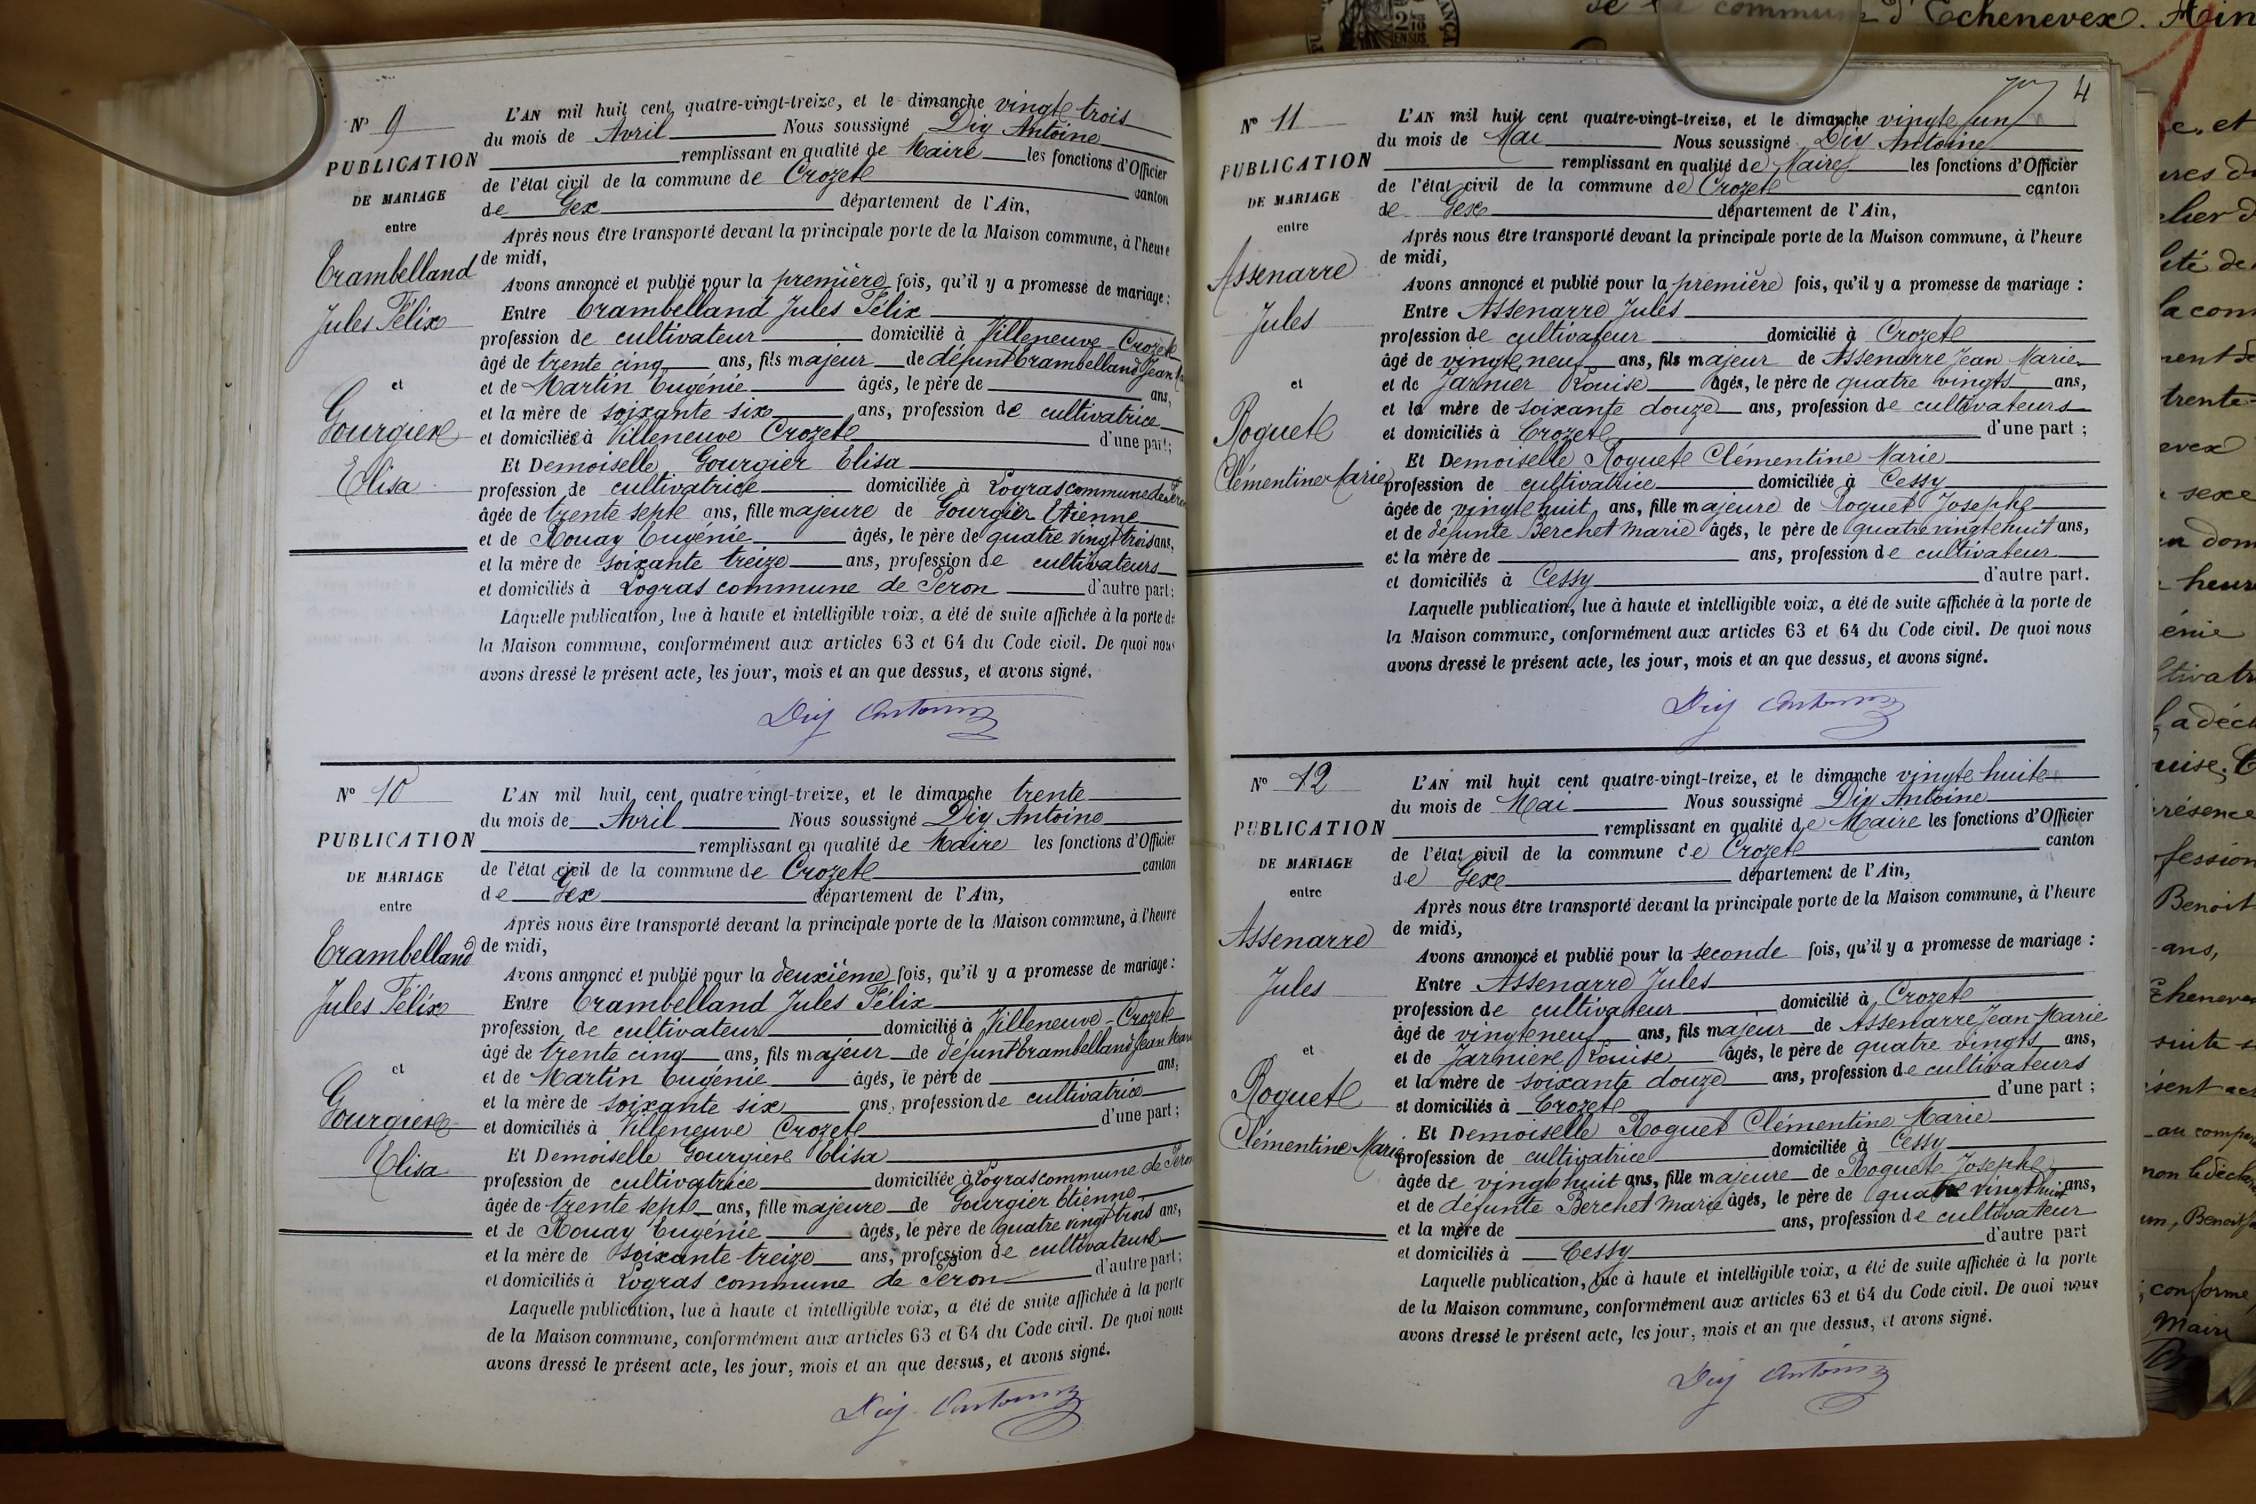 N° 9
PUBLICATION
DE MARIAGE
entre
Trambelland
Jules Félix
et
Gourgier
Elisa
L'AN mil huit cent quatre-vingt-treize, et le dimanche vingt trois
du mois de Avril Nous soussigné Dig Antoine
remplissant en qualité de Maire les fonctions d'Officier
de l'état civil de la commune de Crozet canton
de Gex département de l'Ain,
Après nous être transporté devant la principale porte de la Maison commune, à l'heure
de midi,
Avons annoncé et publié pour la première fois, qu'il y a promesse de mariage :
Entre Trambelland Jules Félix
profession de cultivateur domicilié à Villeneuve - Crozet
âgé de trente cinq ans, fils majeur de défunt Trambelland Jean
et de Martin Eugénie âgés, le père de ans,
et la mère de soixante six ans, profession de cultivatrice
et domiciliés à Villeneuve Crozet d'une part;
Et Demoiselle Gourgier Elisa
profession de cultivatrice domiciliée à Logras commune de
âgée de trente sept ans, fille majeure de Gourgier Etienne
et de Rouay Eugénie âgés, le père de quatre vingt trois ans,
et la mère de soixante treize ans, profession de cultivateurs
et domiciliés à Logras commune de Péron d'autre part;
Laquelle publication, lue à haute et intelligible voix, a été de suite affichée à la porte de
la Maison commune, conformément aux articles 63 et 64 du Code civil. De quoi nous
avons dressé le présent acte, les jour, mois et an que dessus, et avons signé.
Dig Antoine
N° 10
PUBLICATION
DE MARIAGE
entre
Trambelland
Jules Félix
et
Gourgier
Elisa
L'AN mil huit cent quatre vingt-treize, et le dimanche trente
du mois de Avril Nous soussigné Dig Antoine
remplissant en qualité de Maire les fonctions d'Officier
de l'état civil de la commune de Crozet canton
de Gex département de l'Ain,
Après nous être transporté devant la principale porte de la Maison commune, à l'heure
de midi,
Avons annoncé et publié pour la deuxième fois, qu'il y a promesse de mariage :
Entre Trambelland Jules Félix
profession de cultivateur domicilié à Villeneuve - Crozet
âgé de trente cinq ans, fils majeur de défunt Trambelland Jean Marie
et de Martin Eugénie âgés, le père de ans,
et la mère de soixante six ans, profession de cultivatrice
et domiciliés à Villeneuve Crozet d'une part ;
Et Demoiselle Gourgier Elisa
profession de cultivatrice domiciliée à Logras commune de Péron
âgée de trente sept ans, fille majeure de Gourgier Etienne
et de Rouay Eugénie âgés, le père de quatre vingt trois ans,
et la mère de soixante treize ans, profession de cultivateurs
et domiciliés à Logras commune de Péron d'autre part;
Laquelle publication, lue à haute et intelligible voix, a été de suite affichée à la porte
de la Maison commune, conformément aux articles 63 et 64 du Code civil. De quoi nous
avons dressé le présent acte, les jour, mois et an que dessus, et avons signé.
Dig Antoine
4
N° 11
PUBLICATION
DE MARIAGE
entre
Assenarre
Jules
et
Roquet
Clémentine Marie
L'AN mil huit cent quatre-vingt-treize, et le dimanche vingt un
du mois de Mai Nous soussigné Dig Antoine
remplissant en qualité de Maire les fonctions d'Officier
de l'état civil de la commune de Crozet canton
de Gex département de l'Ain,
Après nous être transporté devant la principale porte de la Maison commune, à l'heure
de midi,
Avons annoncé et publié pour la première fois, qu'il y a promesse de mariage :
Entre Assenarre Jules
profession de cultivateur domicilié à Crozet
âgé de vingt neuf ans, fils majeur de Assenarre Jean Marie
et de Jarnier Louise âgés, le père de quatre vingts ans,
et la mère de soixante douze ans, profession de cultivateurs
et domiciliés à Crozet d'une part ;
Et Demoiselle Roquet Clémentine Marie
profession de cultivatrice domiciliée à Cessy
âgée de vingt huit ans, fille majeure de Roquet Joseph
et de défunte Berchet Marie âgés, le père de quatre vingt huit ans,
et la mère de ans, profession de cultivateur
et domiciliés à Cessy d'autre part.
Laquelle publication, lue à haute et intelligible voix, a été de suite affichée à la porte de
la Maison commune, conformément aux articles 63 et 64 du Code civil. De quoi nous
avons dressé le présent acte, les jour, mois et an que dessus, et avons signé.
Dig Antoine
N° 12
PUBLICATION
DE MARIAGE
entre
Assenarre
Jules
et
Roquet
Clémentine Marie
L'AN mil huit cent quatre-vingt-treize, et le dimanche vingt huit
du mois de Mai Nous soussigné Dig Antoine
remplissant en qualité de Maire les fonctions d'Officier
de l'état civil de la commune de Crozet canton
de Gex département de l'Ain,
Après nous être transporté devant la principale porte de la Maison commune, à l'heure
de midi,
Avons annoncé et publié pour la seconde fois, qu'il y a promesse de mariage :
Entre Assenarre Jules
profession de cultivateur domicilié à Crozet
âgé de vingt neuf ans, fils majeur de Assenarre Jean Marie
et de Jarnier Louise âgés, le père de quatre vingts ans,
et la mère de soixante douze ans, profession de cultivateurs
et domiciliés à Crozet d'une part ;
Et Demoiselle Roquet Clémentine Marie
profession de cultivatrice domiciliée à Cessy
âgée de vingt huit ans, fille majeure de Roquet Joseph
et de défunte Berchet Marie âgés, le père de quatre vingt huit ans,
et la mère de ans, profession de cultivateur
et domiciliés à Cessy d'autre part
Laquelle publication, lue à haute et intelligible voix, a été de suite affichée à la porte
de la Maison commune, conformément aux articles 63 et 64 du Code civil. De quoi nous
avons dressé le présent acte, les jour, mois et an que dessus, et avons signé.
Dig Antoine
commune d'Echenevex. Ain